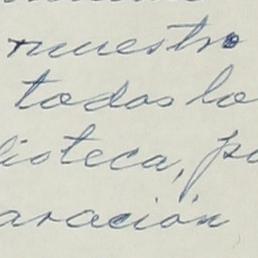 nuestro
todos lo
lioteca, pa
aración